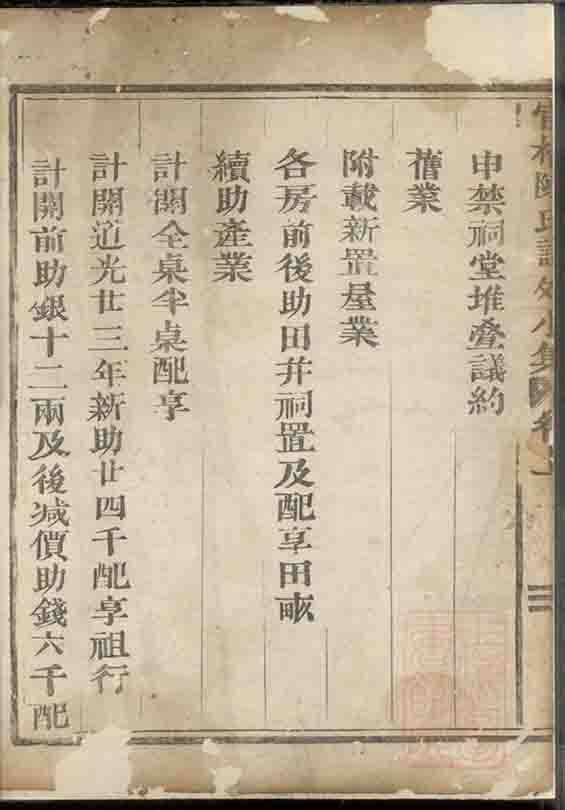 申禁祠堂堆叠議約
舊業
附載新置屋業
各房前後助田并祠置及配享田畝
續助產業
計開全桌半桌配享
計開道光廿三年新助廿四千配享祖行
計開前助銀十二兩及後减價助錢六千配